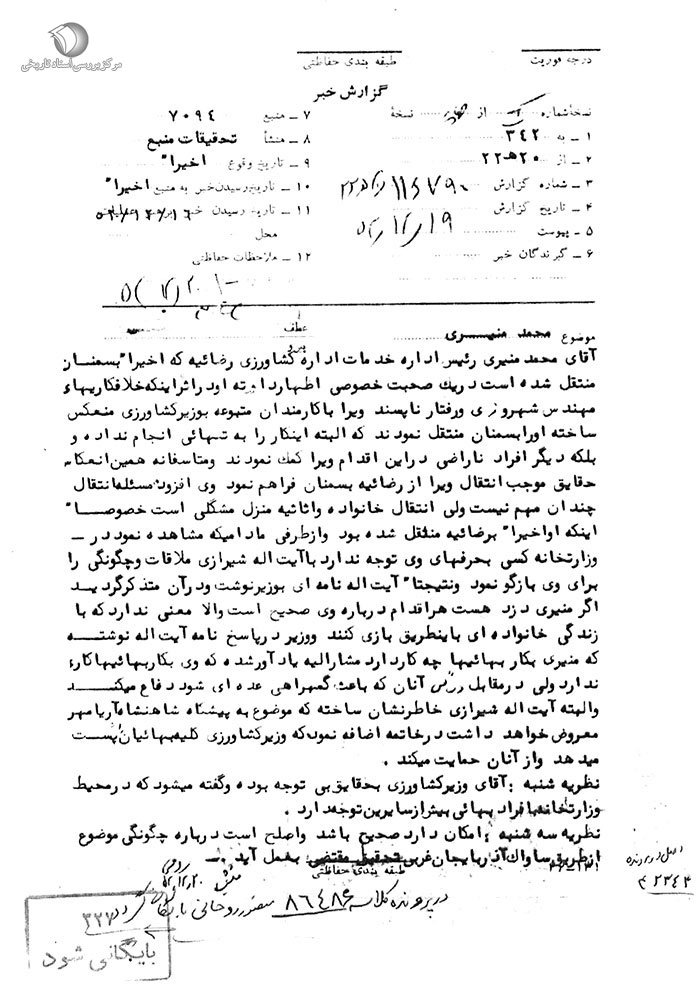 مرکز بررسی اسناد تاریخی
درجه فوریت
طبقه بندی حفاظتی
گزارش خبر
نسخهٔ شماره از نسخهٔ
۱ ــ به ۳۴۲
۲ ــ از ۲۰هـ۲۲
۳ ــ شماره گزارش
۴ ــ تاریخ گزارش ۱۹/۱۲/
۵ ــ پیوست
۶ ــ گیرندگان خبر
۷ ــ منبع ۷۰۹۴
۸ ــ منشأ تحقیقات منبع
۹ ــ تاریخ وقوع اخیرا"
۱۰ ــ تاریخ رسیدن خبر به منبع اخیرا"
۱۱ ــ تاریخ رسیدن خبر
محل
۱۲ ــ ملاحظات حفاظتی
موضوع محمد منیری
عطف
پیرو
آقای محمد منیری رئیس اداره خدمات اداره کشاورزی رضائیه که اخیرا" بسمنان
منتقل شده است در یک صحبت خصوصی اظهار داشته اود راثر اینکه خلافکاریهای
مهندس شهروزی ورفتار ناپسند ویرا باکارمندان متبوعه بوزیر کشاورزی منعکس
ساخته اورا بسمنان منتقل نمودند که البته اینکار را به تنهائی انجام نداده و
بلکه دیگر افراد ناراضی دراین اقدام ویرا کمک نمودند ومتاسفانه همین انعکاس
حقایق موجب انتقال ویرا از رضائیه بسمنان فراهم نمود وی افزود مسئله انتقال
چندان مهم نیست ولی انتقال خانواده واثاثیه منزل مشگلی است خصوصا"
اینکه او اخیرا" برضائیه منتقل شده بود وازطرفی مادامیکه مشاهده نمود در ــ
وزارتخانه کسی بحرفهای وی توجه ندارد باآیت اله شیرازی ملاقات وچگونگی را
برای وی بازگو نمود ونتیجتا" آیت اله نامه ای بوزیر نوشت ودرآن متذکر گردید
اگر منیری دزد هست هراقدام درباره وی صحیح است والا معنی ندارد که با
زندگی خانواده ای باینطریق بازی کنند ووزیر درپاسخ نامه آیت اله نوشته
که منیری بکار بهائیها چه کار دارد مشارالیه یادآورشده که وی بکار بهائیها کاری
ندارد ولی درمقابل روش آنان که باعث گمراهی عده ای شود دفاع میکند
والبته آیت اله شیرازی خاطرنشان ساخته که موضوع به پیشگاه شاهنشاه آریامهر
معروض خواهد داشت درخاتمه اضافه نمود که وزیر کشاورزی کلیه بهائیان پست
میدهد واز آنان حمایت میکند .
نظریه شنبه : آقای وزیر کشاورزی بحقایق بی توجه بوده وگفته میشود که درمحیط
وزارتخانه بافراد بهائی بیش از سایرین توجه دارد .
نظریه سه شنبه : امکان دارد صحیح باشد واصلح است درباره چگونگی موضوع
ازطریق ساواک آذربایجان غربی تحقیق مقتضی بعمل آید .
طبقه بندی حفاظتی
در پرونده کلاسه ۸۶۴۸۶ منصور روحانی بایگانی
اصل در پرونده
بایگانی شود